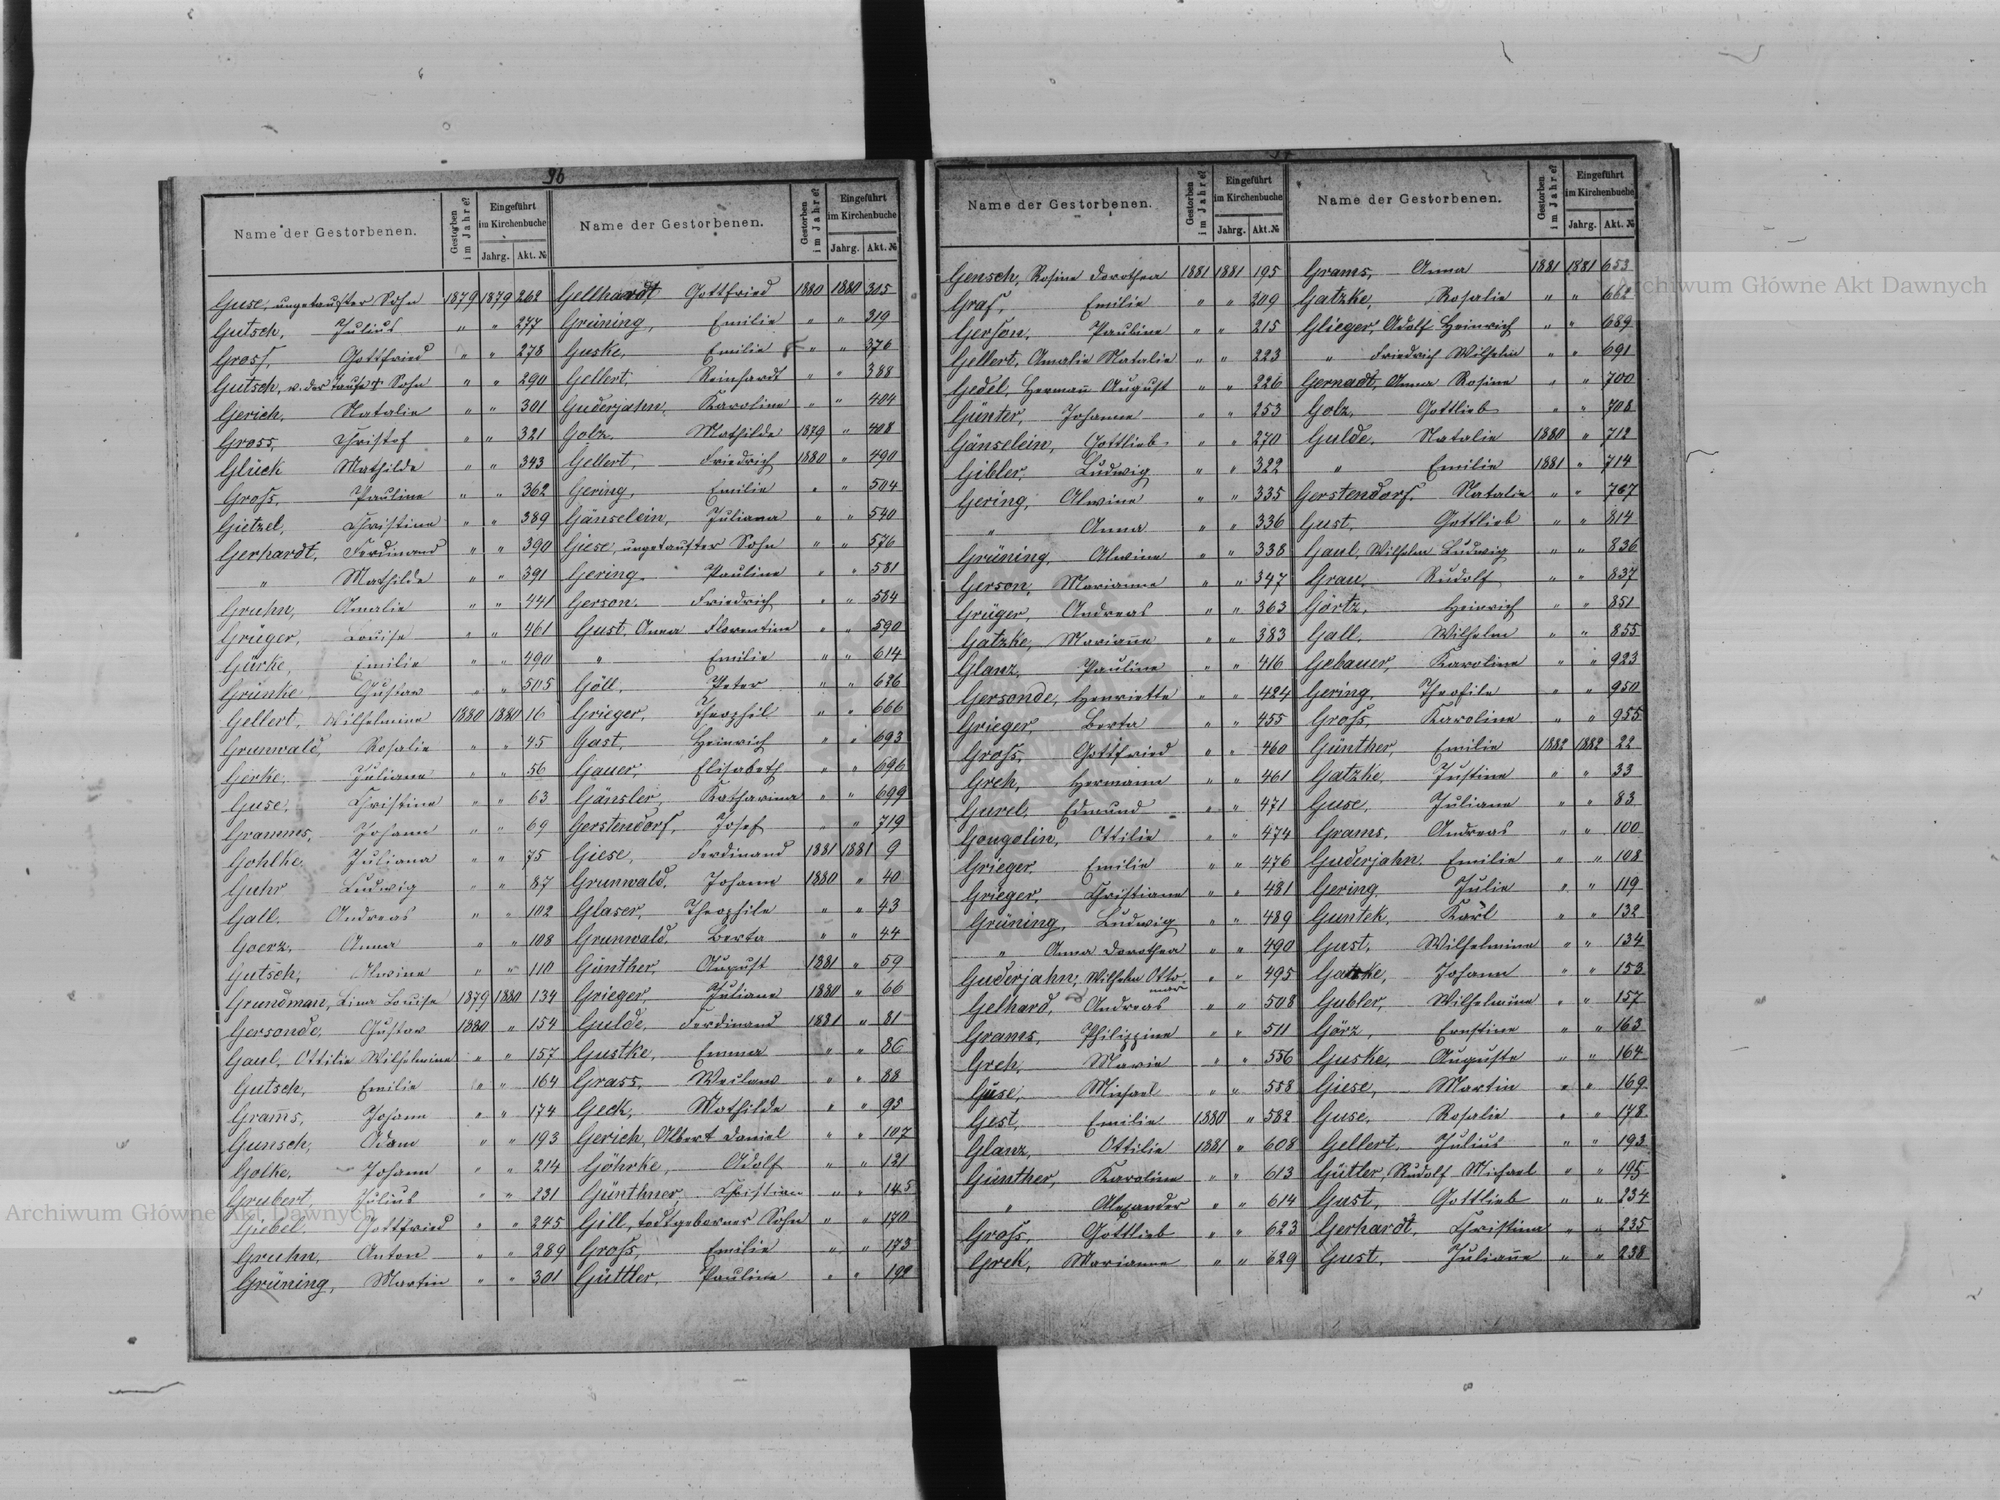 96
Name der Gestorbenen.
Gestorben im Jahre?
Eingeführt im Kirchenbuche
Jahrg.
Akt. №
Guse, ungetaufter Sohn 1879 1879 262
Gutsch, Julius " " 277
Gross, Gottfried " " 278
Gutsch, v. der taufe † Sohn " " 290
Gerich, Natalie " " 301
Gross, Christof " " 321
Glück Mathilde " " 343
Gross, Pauline " " 362
Gietzel, Christine " " 389
Gerhardt, Ferdinand " " 390
" Mathilde " " 391
Gruhn, Amalie " " 441
Grüger, Louise " " 461
Gürke, Emilie " " 490
Grünke Gustav " " 505
Gellert, Wilhelmine 1880 1880 16
Grunwald, Rosalie " " 45
Gerke, Juliane " " 56
Guse, Christine " " 63
Grammes, Johann " " 69
Gohlke Juliana " " 75
Guhr Ludwig " " 87
Gall, Andreas " " 102
Goerz, Anna " " 108
Gutsch, Alwine " " 110
Grundman, Lina Louise 1879 1880 134
Gersonde, Gustav 1880 " 154
Gaul, Ottilie Wilhelmine " " 157
Gutsch, Emilie " " 164
Grams, Johann " " 174
Gunsch, Adam " " 193
Golke, Johann " " 214
Grubert, Julius " " 231
Giebel, Gottfried " " 245
Gruhn, Anton " " 289
Grüning, Martin " " 301
Name der Gestorbenen.
Gestorben im Jahre?
Eingeführt im Kirchenbuche
Jahrg.
Akt. №
Gellhardt Gottfried 1880 1880 305
Grüning, Emilie " " 319
Guske, Emilie " " 376
Gellert, Reinhardt " " 388
Guderjahn, Karoline " " 404
Golz, Mathilde 1879 " 408
Gellert, Friedrich 1880 " 490
Gering, Emilie " " 504
Gänselein, Juliana " " 540
Giese, ungetaufter Sohn " " 576
Gering, Pauline " " 581
Gerson, Friedrich " " 584
Gust, Anna Florentine " " 590
" Emilie " " 614
Göll, Peter " " 626
Grieger, Theophil " " 666
Gast, Heinrich " " 693
Gauer, Elisabeth " " 696
Gänsler, Katharina " " 699
Gerstendorf, Josef " " 719
Giese, Ferdinand 1881 1881 9
Grunwald, Johann 1880 " 40
Glaser, Theophile " " 43
Grunwald, Berta " " 44
Günther, August 1881 " 59
Grieger, Juliane 1880 " 66
Gulde, Ferdinand 1881 " 81
Gustke, Emma " " 86
Grass, " " 88
Geck, Mathilde " " 95
Gerich, Albert Daniel " " 107
Göhrke, Adolf " " 121
Günthner, Christian " " 145
Gill, todtgeborner Sohn " " 170
Gross, Emilie " " 173
Güttler, Pauline " " 199
Name der Gestorbenen.
Gestorben im Jahre?
Eingeführt im Kirchenbuche
Jahrg.
Akt. №
Gensch, Rosine Dorothea 1881 1881 195
Graf, Emilie " " 209
Gerson, Pauline " " 215
Gellert, Amalie Natalie " " 223
Gedel, Hermann August " " 226
Günter, Johanne " " 253
Gänselein, Gottlieb " " 270
Gibler, Ludwig " " 322
Gering, Alwine " " 335
" Anna " " 336
Grüning, Alwine " " 338
Gerson, Marianne " " 347
Grüger, Andreas " " 363
Gatzke, Marianne " " 383
Glanz, Pauline " " 416
Gersonde, Henriette " " 424
Grieger, Berta " " 455
Gross, Gottfried " " 460
Greh, Hermann " " 461
Gurel, Edmund " " 471
Gongolin, Ottilie " " 474
Grieger, Emilie " " 476
Grieger, Christiane " " 481
Grüning, Ludwig " " 489
" Anna Dorothea " " 490
Guderjahn, Wilhelm Ottomar " " 495
Gelhard, Andreas " " 508
Grams, Philippine " " 511
Greh, Marie " " 556
Guse, Michael " " 558
Gest, Emilie 1880 " 582
Glanz, Ottilie 1881 " 608
Günther, Karoline " " 613
" Alexander " " 614
Gross, Gottlieb " " 623
Grek, Marianne " " 629
Name der Gestorbenen.
Gestorben im Jahre?
Eingeführt im Kirchenbuche
Jahrg.
Akt. №
Grams, Anna 1881 1881 653
Gatzke, Rosalie " " 662
Glieger, Adolf Heinrich " " 689
" Friedrich Wilhelm " " 691
Gernadt, Anna Rosine " " 700
Golz, Gottlieb " " 708
Gulde, Natalie 1880 " 712
" Emilie 1881 " 714
Gerstendorf, Natalie " " 767
Gust, Gottlieb " " 814
Gaul, Wilhelm Ludwig " " 836
Grau, Rudolf " " 837
Görtz, Heinrich " " 851
Gall, Wilhelm " " 855
Gebauer, Karoline " " 923
Gering, Theofile " " 950
Gross, Karoline " " 955
Günther, Emilie 1882 1882 22
Gatzke, Justine " " 33
Guse, Juliane " " 83
Grams, Andreas " " 100
Guderjahn Emilie " " 108
Gering Julie " " 119
Guntek, Karl " " 132
Gust, Wilhelmine " " 134
Gatzke, Johann " " 153
Gubler, Wilhelmine " " 157
Görz, Ernstine " " 163
Guske, Auguste " " 164
Giese, Martin " " 169
Guse, Rosalie " " 178
Gellert, Julius " " 193
Gütler, Rudolf Michael " " 195
Gust, Gottlieb " " 234
Gerhardt, Christina " " 235
Gust, Julianne " " 238
Archiwum Główne Akt Dawnych
Archiwum Główne Akt Dawnych